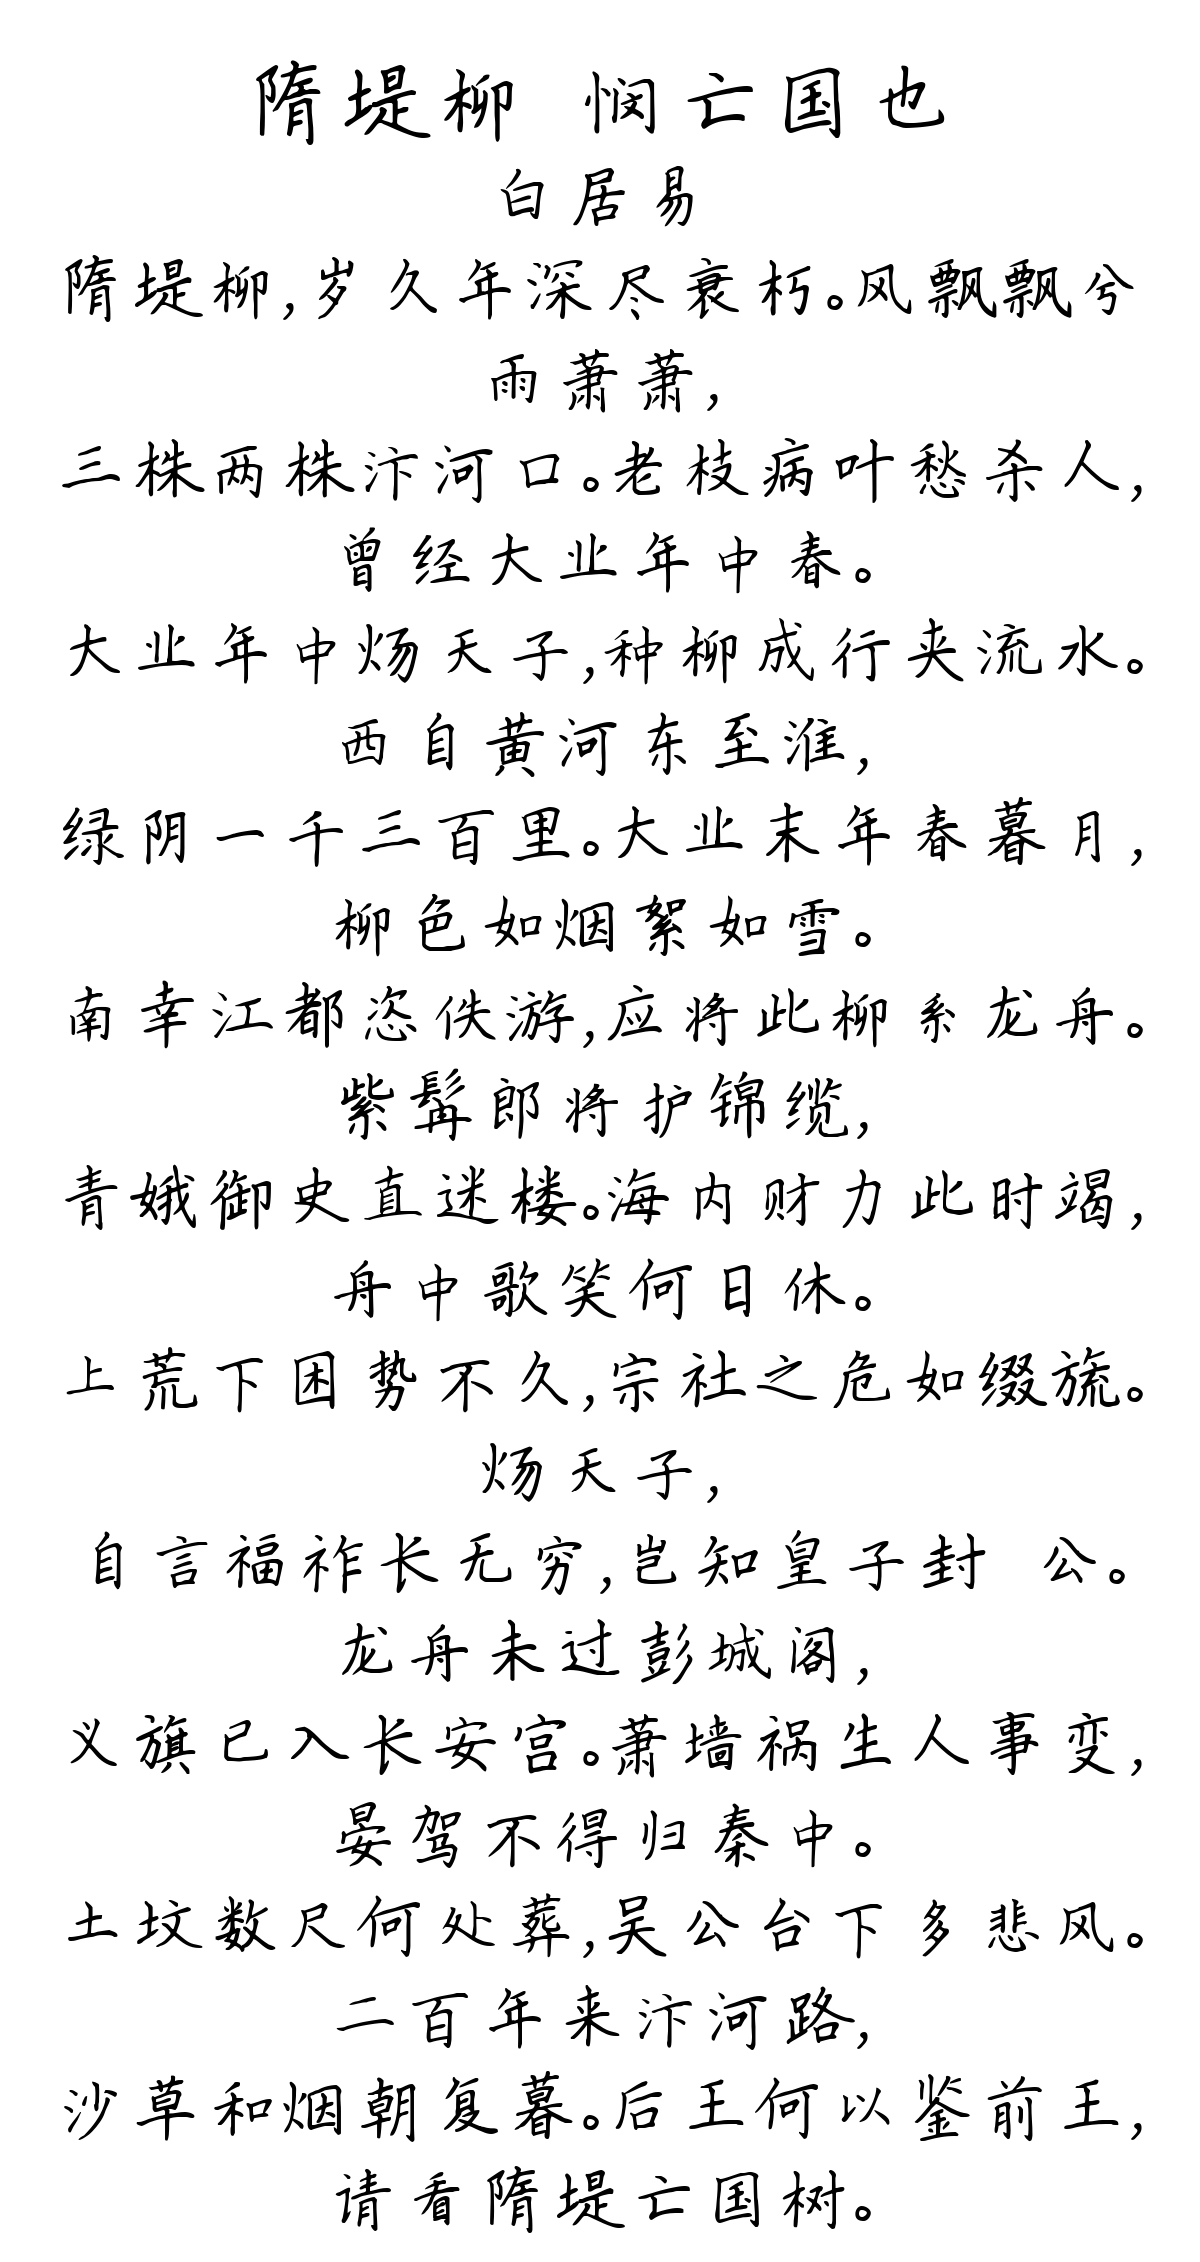 隋堤柳 悯亡国也
白居易
隋堤柳,岁久年深尽衰朽。风飘飘兮
雨萧萧,
三株两株汴河口。老枝病叶愁杀人,
曾经大业年中春。
大业年中炀天子,种柳成行夹流水。
西自黄河东至淮,
绿阴一千三百里。大业末年春暮月,
柳色如烟絮如雪。
南幸江都恣佚游,应将此柳系龙舟。
紫髯郎将护锦缆,
青娥御史直迷楼。海内财力此时竭,
舟中歌笑何日休。
上荒下困势不久,宗社之危如缀旒。
炀天子,
自言福祚长无穷,岂知皇子封 公。
龙舟未过彭城阁,
义旗已入长安宫。萧墙祸生人事变,
晏驾不得归秦中。
土坟数尺何处葬,吴公台下多悲风。
二百年来汴河路,
沙草和烟朝复暮。后王何以鉴前王,
请看隋堤亡国树。